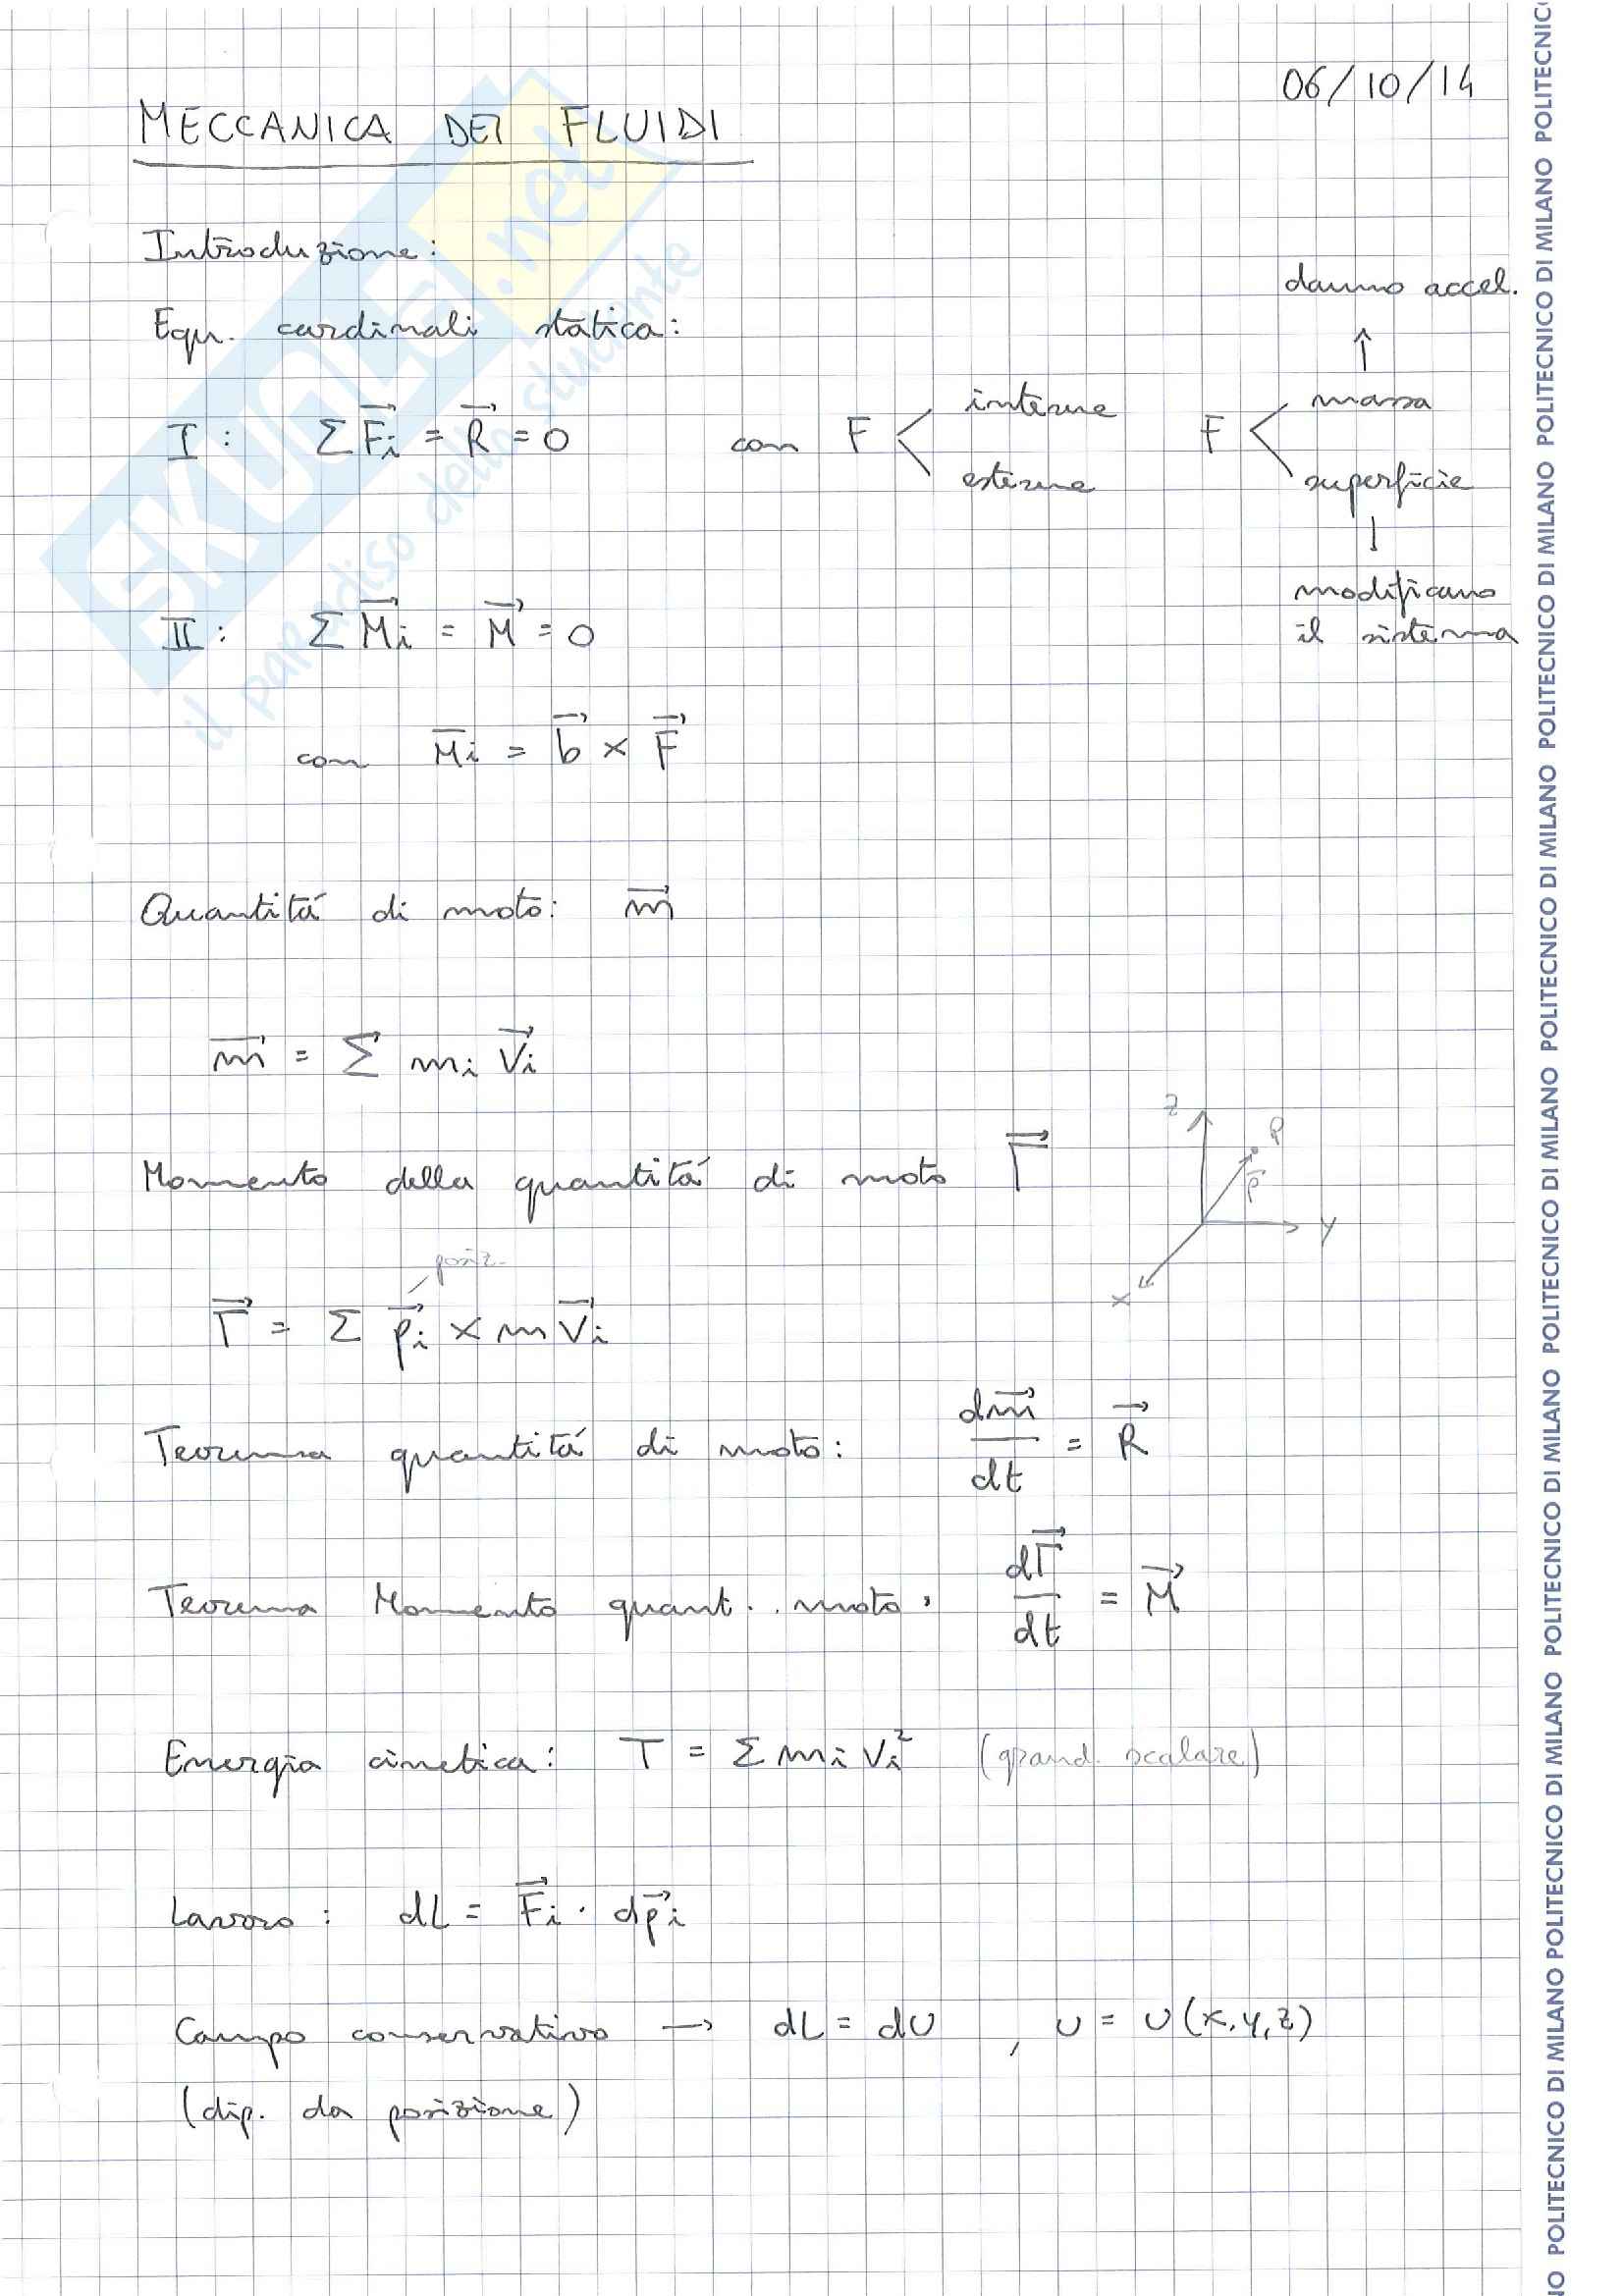 06/10/14
MECCANICA DEI FLUIDI
Introduzione:
Equ. cardinali statica:
danno accel.
↑
I: Σ F⃗i = R⃗ = 0 con F < interne esterne F < massa superficie
↓
modificano
il sistema
II: Σ M⃗i = M⃗ = 0
con M̅i = b⃗ × F⃗
Quantitá di moto: m⃗
m⃗ = Σ mi V⃗i
Momento della quantitá di moto Γ⃗
z P p̅ y x
posiz.
Γ⃗ = Σ p⃗i × m V⃗i
Teorema quantitá di moto: dm⃗/dt = R⃗
Teorema Momento quant. moto: dΓ⃗/dt = M⃗
Energia cinetica: T = Σ mi Vi² (grand. scalare)
Lavoro: dL = F⃗i · dp⃗i
Campo conservativo → dL = dU , U = U(x,y,z)
(dip. da posizione)
SKUOLA.net
il paradiso dello studente
POLITECNICO DI MILANO POLITECNICO DI MILANO POLITECNICO DI MILANO POLITECNICO DI MILANO POLITECNICO DI MILANO POLITECNICO DI MILANO POLITECNICO DI MILANO POLITECNICO DI MILANO